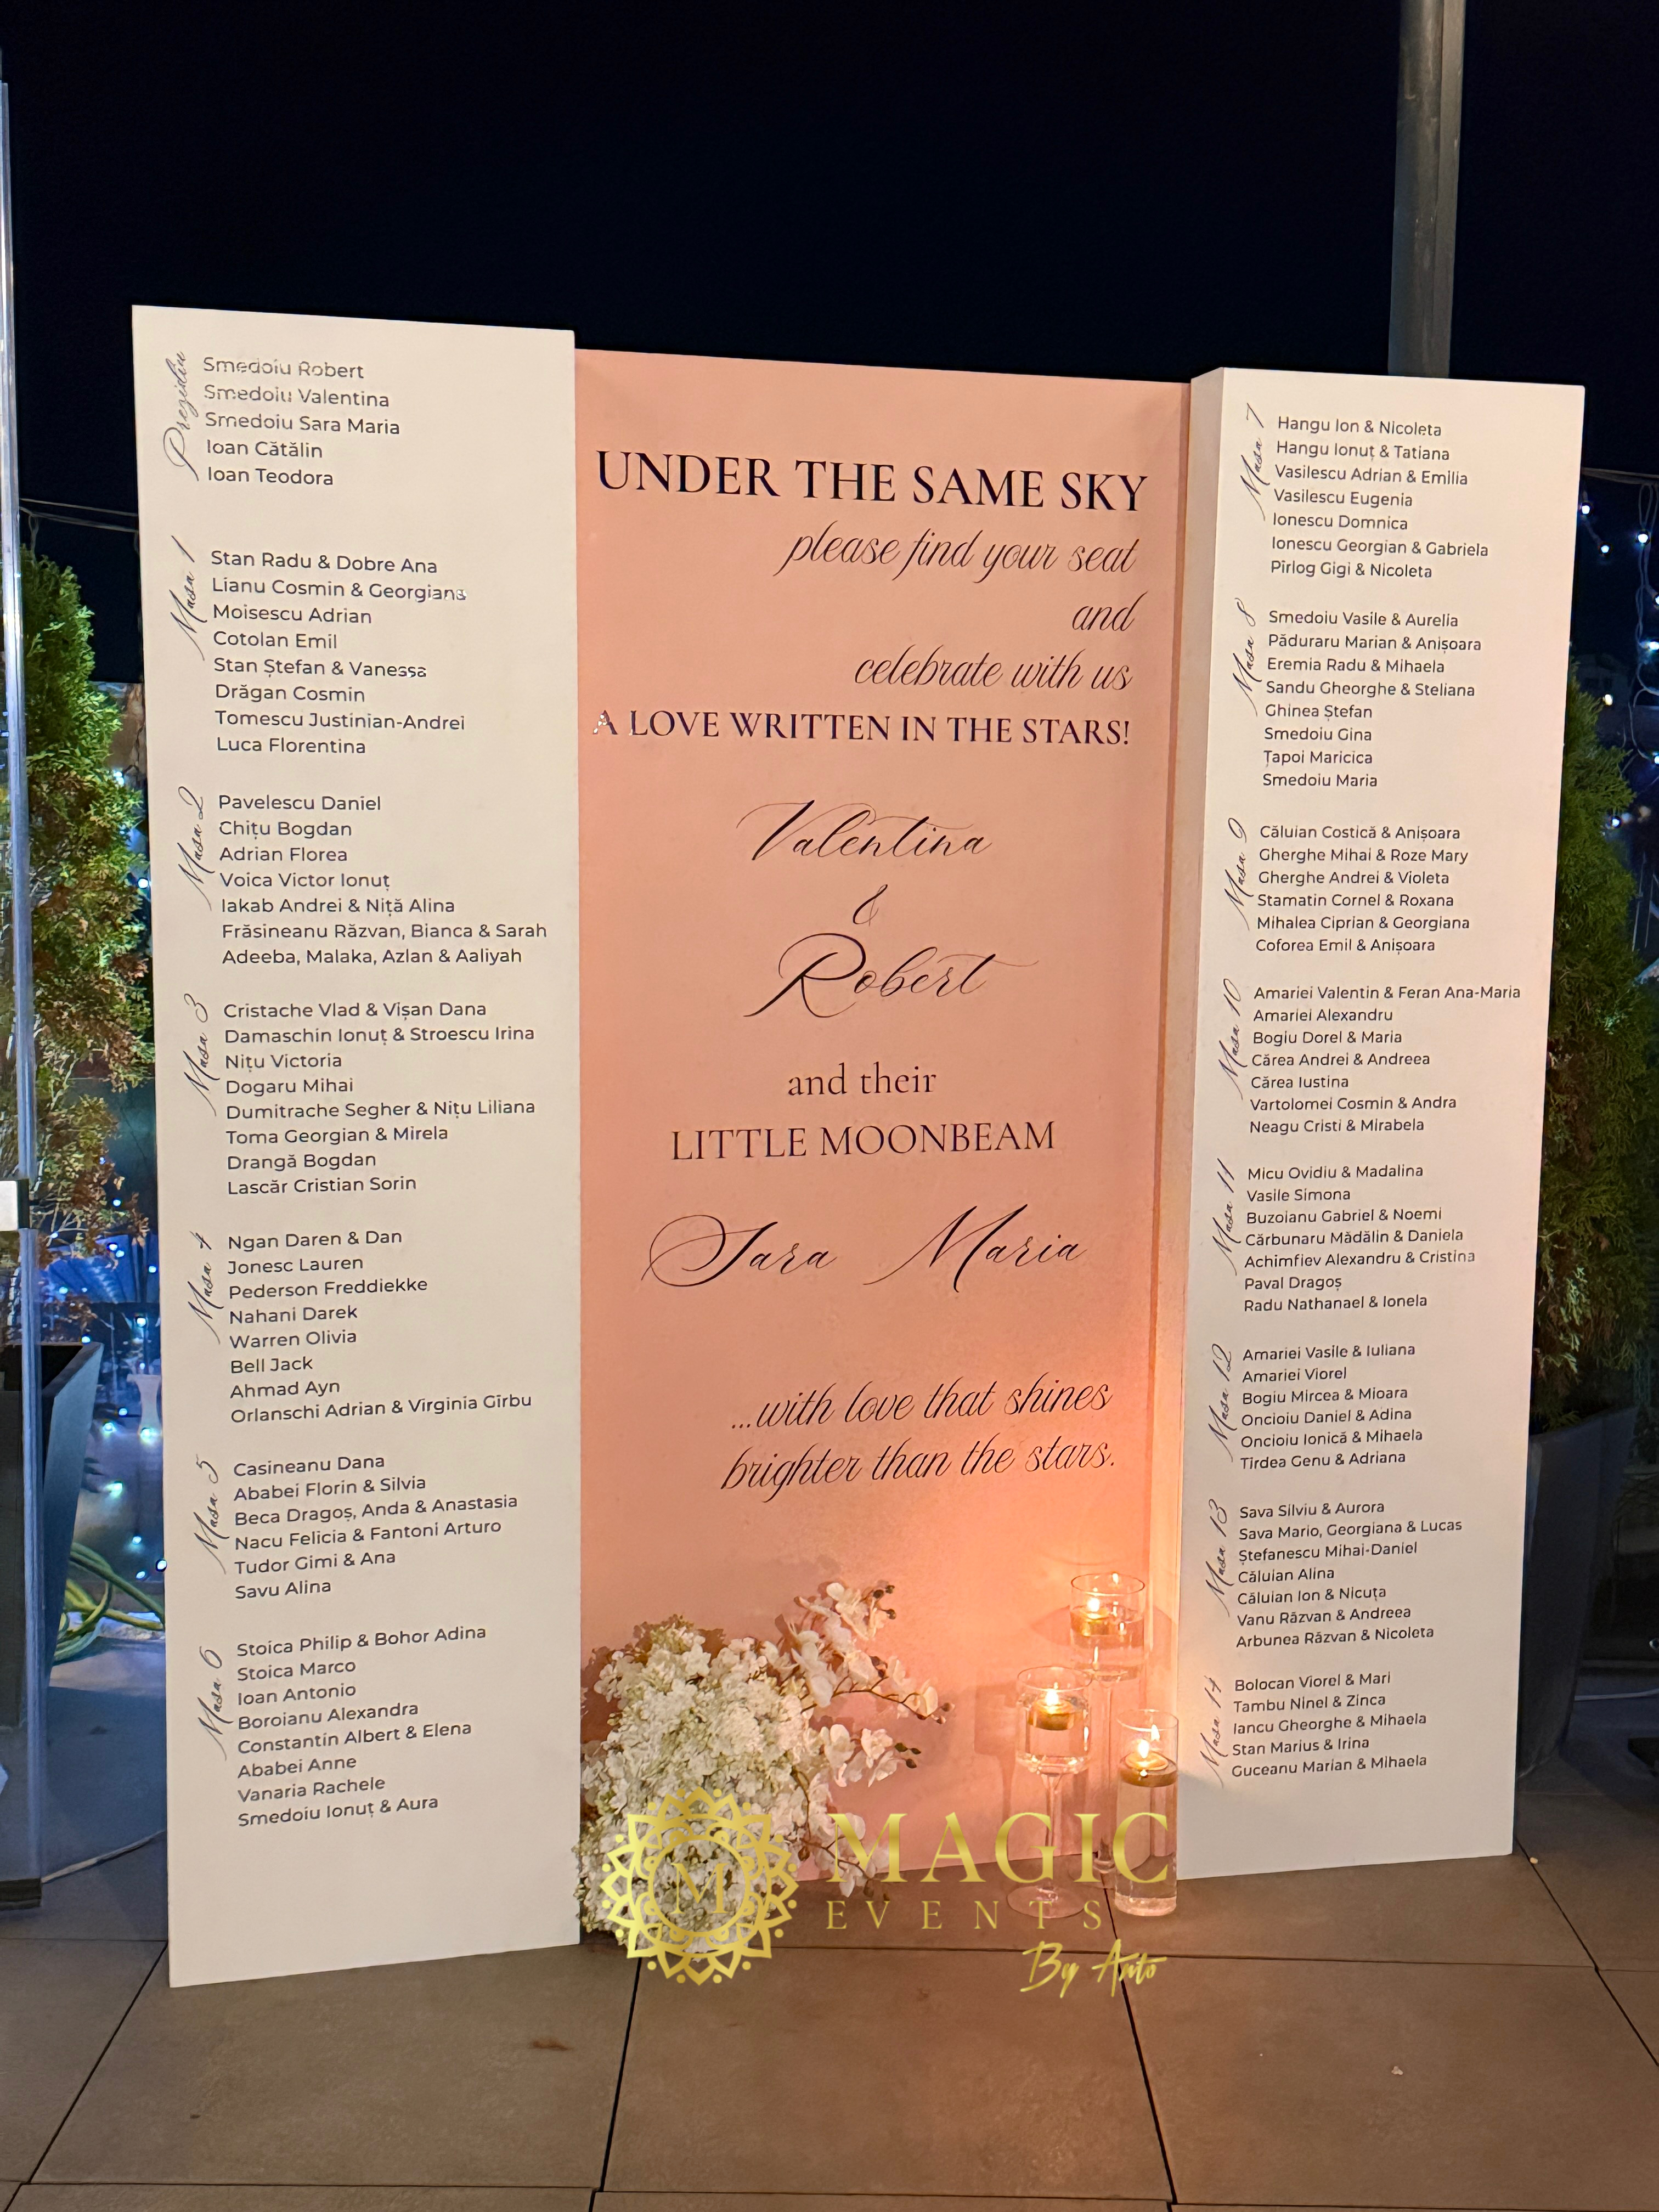 Prezidiu
Smedoiu Robert
Smedoiu Valentina
Smedoiu Sara Maria
Ioan Cătălin
Ioan Teodora
Masa 1
Stan Radu & Dobre Ana
Lianu Cosmin & Georgiana
Moisescu Adrian
Cotolan Emil
Stan Ștefan & Vanessa
Drăgan Cosmin
Tomescu Justinian-Andrei
Luca Florentina
Masa 2
Pavelescu Daniel
Chițu Bogdan
Adrian Florea
Voica Victor Ionuț
Iakab Andrei & Niță Alina
Frăsineanu Răzvan, Bianca & Sarah
Adeeba, Malaka, Azlan & Aaliyah
Masa 3
Cristache Vlad & Vișan Dana
Damaschin Ionuț & Stroescu Irina
Nițu Victoria
Dogaru Mihai
Dumitrache Segher & Nițu Liliana
Toma Georgian & Mirela
Drangă Bogdan
Lascăr Cristian Sorin
Masa 4
Ngan Daren & Dan
Jonesc Lauren
Pederson Freddiekke
Nahani Darek
Warren Olivia
Bell Jack
Ahmad Ayn
Orlanschi Adrian & Virginia Gîrbu
Masa 5
Casineanu Dana
Ababei Florin & Silvia
Beca Dragoș, Anda & Anastasia
Nacu Felicia & Fantoni Arturo
Tudor Gimi & Ana
Savu Alina
Masa 6
Stoica Philip & Bohor Adina
Stoica Marco
Ioan Antonio
Boroianu Alexandra
Constantin Albert & Elena
Ababei Anne
Vanaria Rachele
Smedoiu Ionuț & Aura
UNDER THE SAME SKY
please find your seat
and
celebrate with us
A LOVE WRITTEN IN THE STARS!
Valentina
&
Robert
and their
LITTLE MOONBEAM
Sara Maria
...with love that shines
brighter than the stars.
Masa 7
Hangu Ion & Nicoleta
Hangu Ionuț & Tatiana
Vasilescu Adrian & Emilia
Vasilescu Eugenia
Ionescu Domnica
Ionescu Georgian & Gabriela
Pîrlog Gigi & Nicoleta
Masa 8
Smedoiu Vasile & Aurelia
Păduraru Marian & Anișoara
Eremia Radu & Mihaela
Sandu Gheorghe & Steliana
Ghinea Ștefan
Smedoiu Gina
Țapoi Maricica
Smedoiu Maria
Masa 9
Căluian Costică & Anișoara
Gherghe Mihai & Roze Mary
Gherghe Andrei & Violeta
Stamatin Cornel & Roxana
Mihalea Ciprian & Georgiana
Coforea Emil & Anișoara
Masa 10
Amariei Valentin & Feran Ana-Maria
Amariei Alexandru
Bogiu Dorel & Maria
Cărea Andrei & Andreea
Cărea Iustina
Vartolomei Cosmin & Andra
Neagu Cristi & Mirabela
Masa 11
Micu Ovidiu & Madalina
Vasile Simona
Buzoianu Gabriel & Noemi
Cărbunaru Mădălin & Daniela
Achimfiev Alexandru & Cristina
Paval Dragoș
Radu Nathanael & Ionela
Masa 12
Amariei Vasile & Iuliana
Amariei Viorel
Bogiu Mircea & Mioara
Oncioiu Daniel & Adina
Oncioiu Ionică & Mihaela
Tîrdea Genu & Adriana
Masa 13
Sava Silviu & Aurora
Sava Mario, Georgiana & Lucas
Ștefanescu Mihai-Daniel
Căluian Alina
Căluian Ion & Nicuța
Vanu Răzvan & Andreea
Arbunea Răzvan & Nicoleta
Masa 14
Bolocan Viorel & Mari
Tambu Ninel & Zinca
Iancu Gheorghe & Mihaela
Stan Marius & Irina
Guceanu Marian & Mihaela
M
MAGIC
EVENTS
By Anto